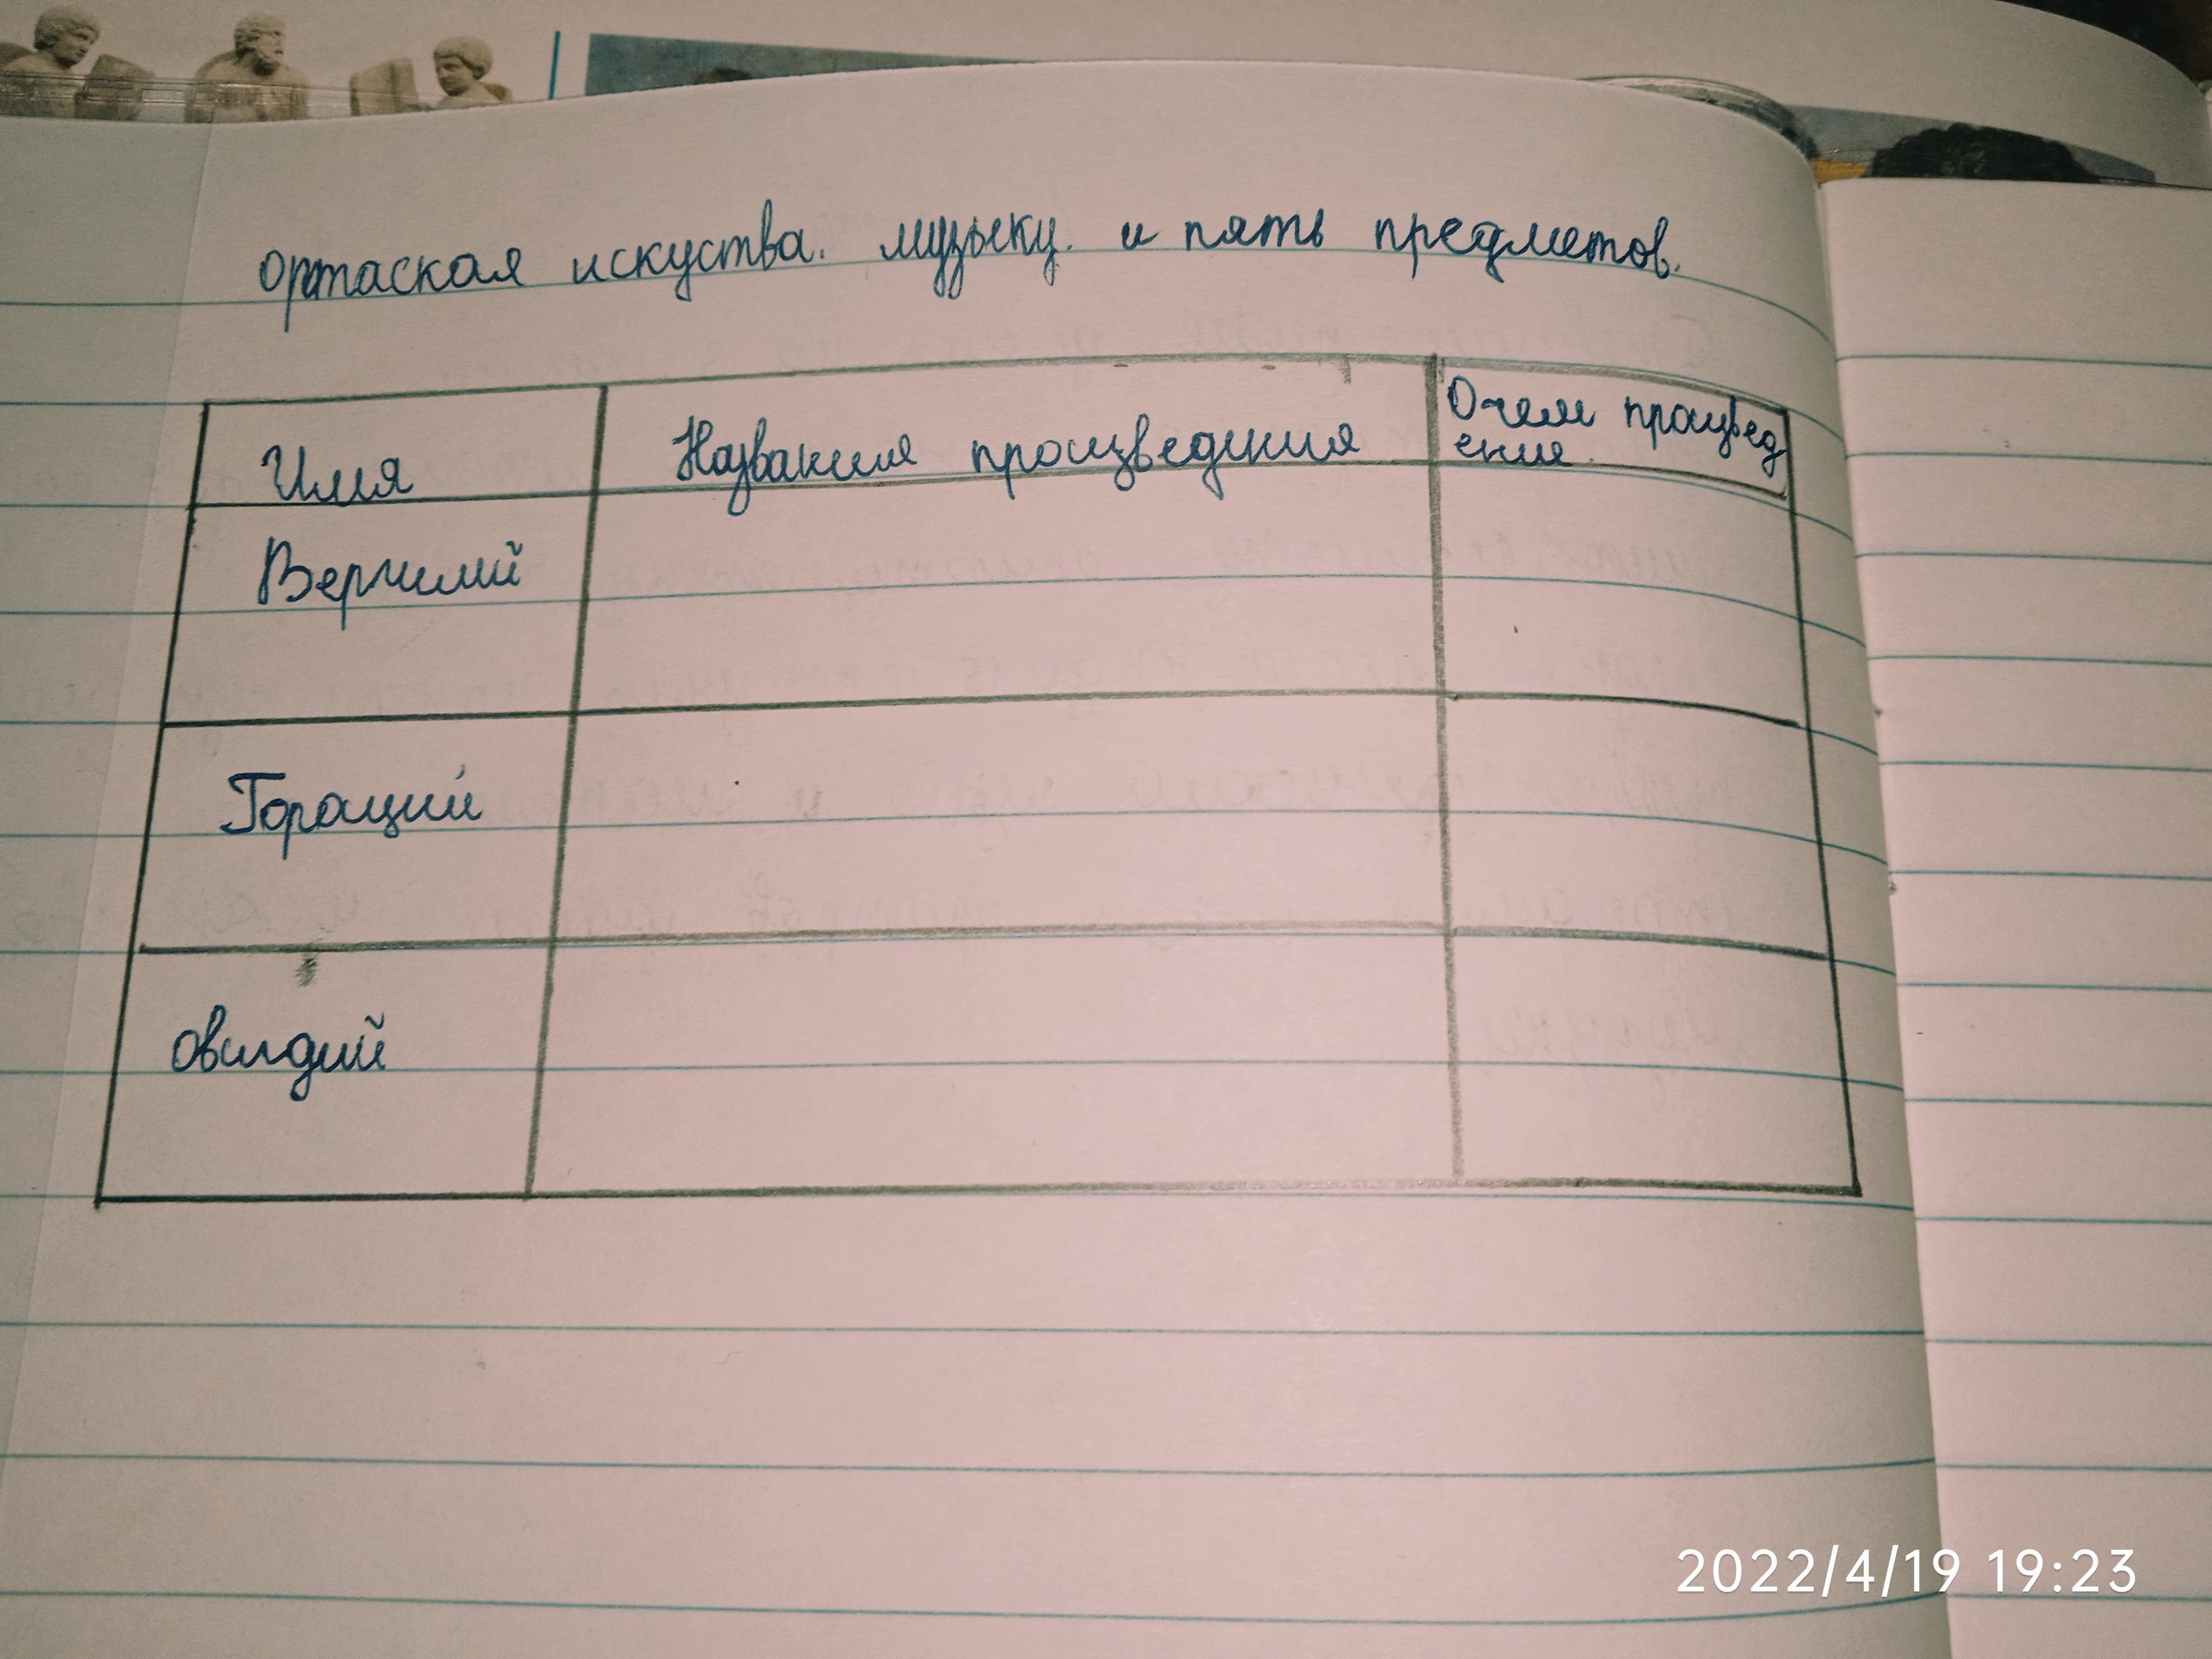 ортаская искуства. музыку. и пять предметов.
Имя Названия произведения О чем произвед
ения.
Вергилий
Гораций
овидий
2022/4/19 19:23